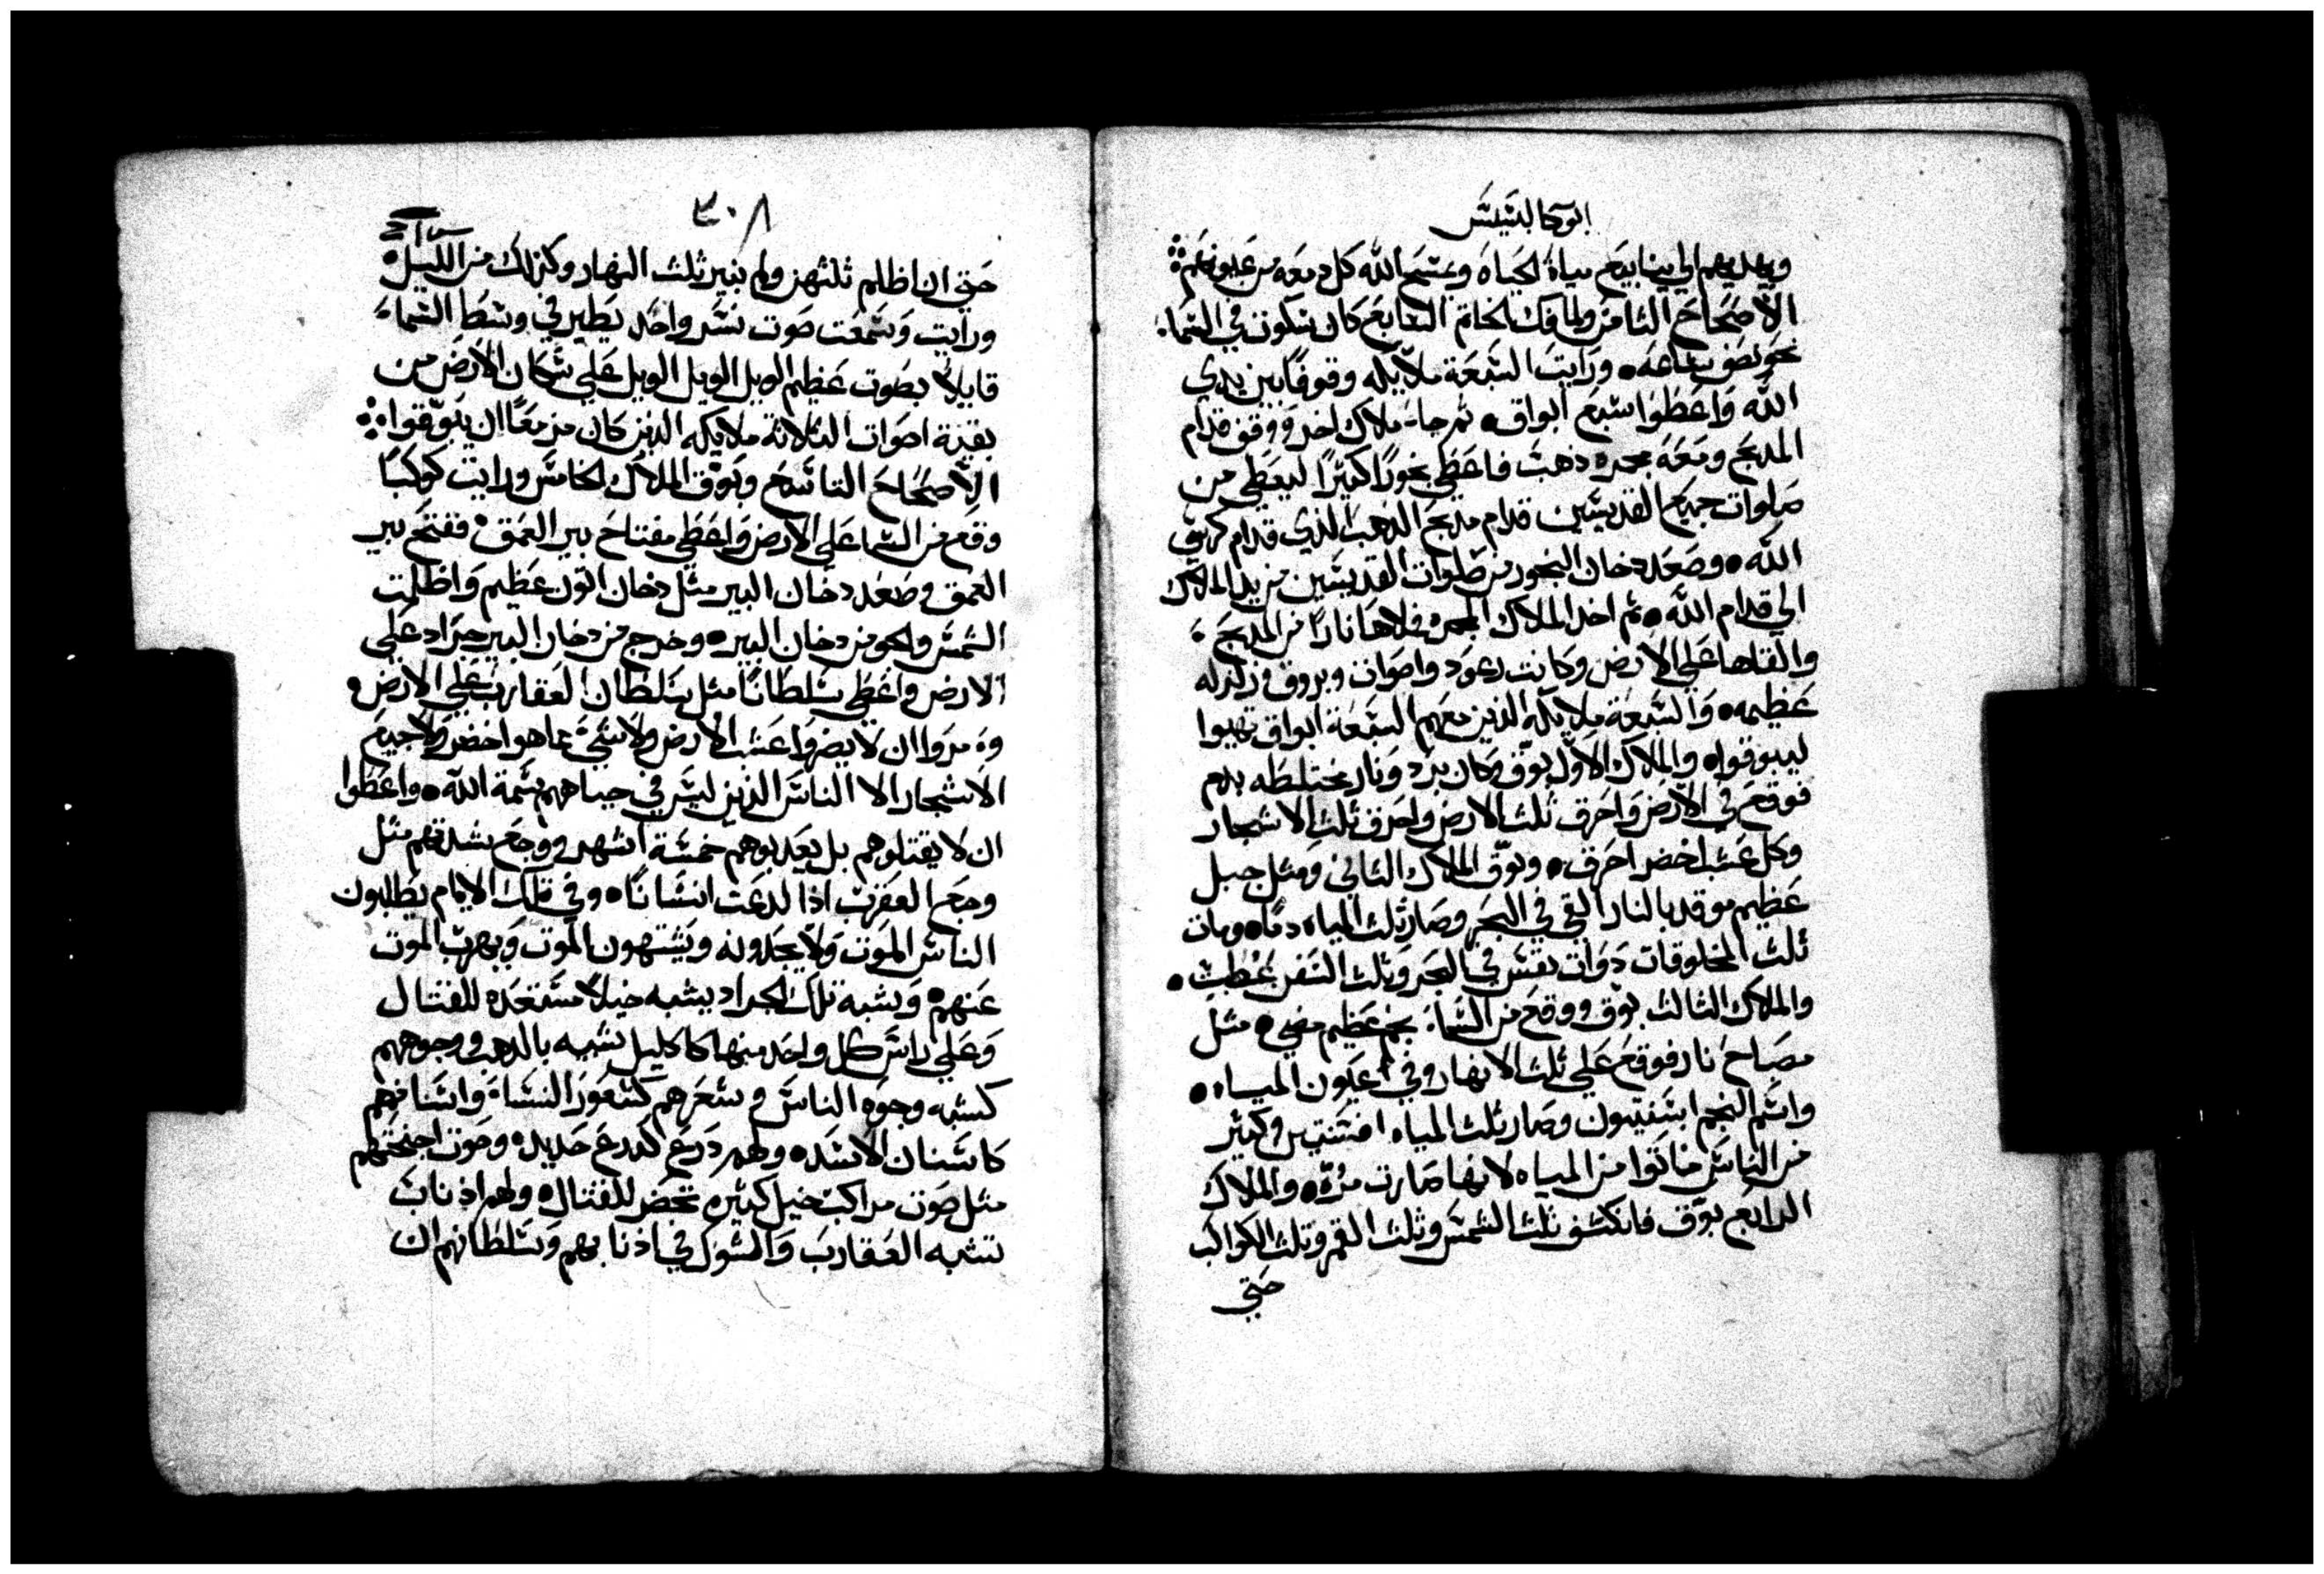 ابوكالبسيس
ويهديهم الي ينابيع مياة الحياه ويمسح الله كل دمعه من عيونهم
الاصحاح الثامن ولما فك الخاتم السابع كان سكوت في السماء
نحو نصف ساعه ورايت السبعة ملايكه وقوفا بين يدي
الله واعطوا سبع ابواق ثم جاء ملاك اخر ووقف قدام
المدبح ومعه مجمره ذهب فاعطي بخورا كثيرا ليعطي من
صلوات جميع القديسين قدام مدبح الذهب الذي قدام كرسي
الله وصعد دخان البخور من صلوات القديسين من يد الملاك
الي قدام الله ثم اخد الملاك المجمره فملاها نارا من المدبح
والقاها علي الارض وكانت رعود واصوات وبروق وزلزله
عظيمه والسبعة ملايكه الذين معهم السبعة ابواق تهيوا
ليبوقوا والملاك الاول بوق وكان برد ونار مختلطه بدم
فوقع في الارض واحرق ثلث الارض واحرق ثلث الاشجار
وكل عشب اخضر احرق وبوق الملاك الثاني ومثل جبل
عظيم موقد بالنار القي في البحر وصار ثلث المياه دما ومات
ثلث المخلوقات دوات نفس في البحر وثلث السفن عطبت
والملاك الثالث بوق ووقع من السماء نجم عظيم مضي مثل
مصباح نار فوقع علي ثلث الانهار وفي اعيون المياه
واسم النجم ابسفيتيون وصار ثلث المياه افسنتين وكثير
من الناس ماتوا من المياه لانها صارت مره والملاك
الرابع بوق فانكسف ثلث الشمس وثلث القمر وثلث الكواكب
حتي
٣٠٨
حتي ان اظلم ثلثهن ولم ينير ثلث النهار وكذلك من الليل
ورايت وسمعت صوت نسر واحد يطير في وسط السماء
قايلا بصوت عظيم الويل الويل الويل علي سكان الارض من
بقية اصوات الثلاثة ملايكه الذين كان مزمعا ان يبوقوا
الاصحاح التاسع وبوق الملاك الخامس ورايت كوكبا
وقع من السما علي الارض واعطي مفتاح بير العمق ففتح بير
العمق وصعد دخان البير مثل دخان اتون عظيم واظلمت
الشمس والجو من دخان البير وخرج من دخان البير جراد علي
الارض واعطي سلطانا مثل سلطان العقارب علي الارض
وامروا ان لا يضروا عشب الارض ولا شيء مما هو اخضر ولا جميع
الاشجار الا الناس الذين ليس في جباههم سمة الله واعطوا
ان لا يقتلوهم بل يعدبوهم خمسة اشهر ووجع شدتهم مثل
وجع العقرب اذا لدعت انسانا وفي تلك الايام يطلبون
الناس الموت ولا يجدونه ويشتهون الموت ويهرب الموت
عنهم وشبه تلك الجراد يشبه خيلا مستعده للقتال
وعلي راس كل واحد منها كاكليل يشبه بالدهب ووجوههم
كشبه وجوه الناس وشعرهم كشعور النساء واسنانهم
كاسنان الاسد ولهم درع كدرع حديد وصوت اجنحتهم
مثل صوت مراكب خيل كثيره تحضر للقتال ولهم اذناب
تشبه العقارب والشوك في اذنابهم وسلطانهم ان